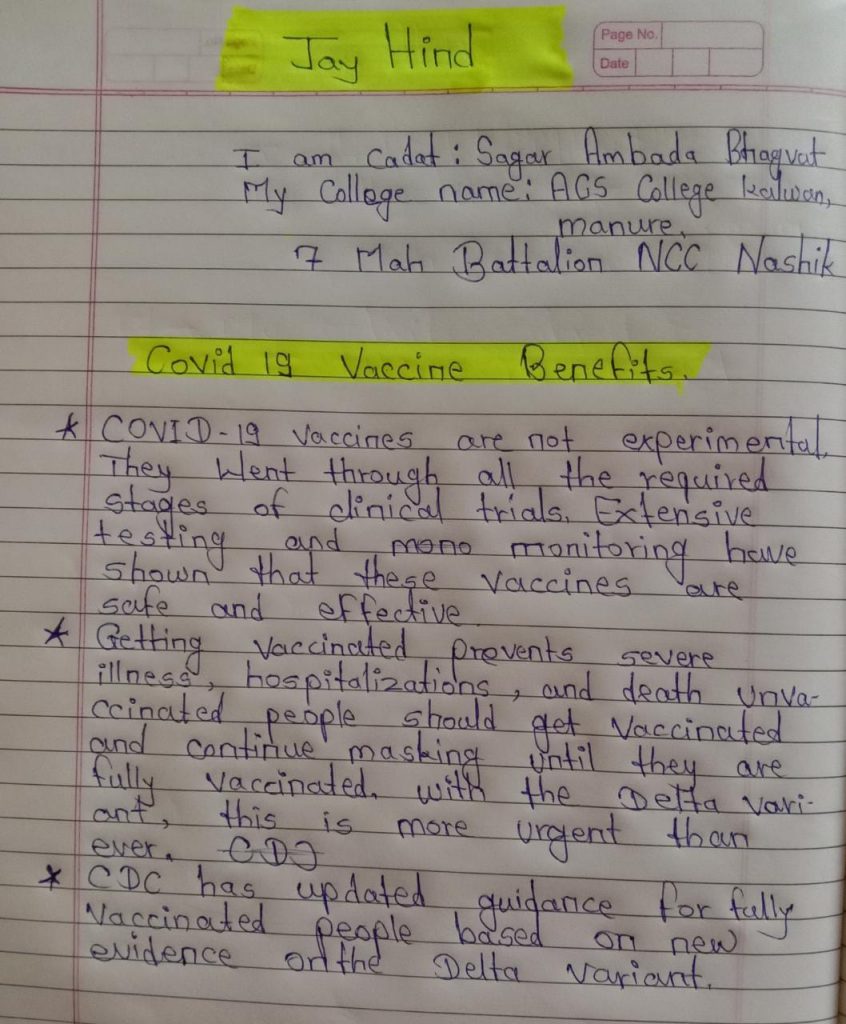 Jay Hind
Page No.
Date
I am cadat : Sagar Ambada Bhagvat
My College name: ACS College kalwan,
manure.
7 Mah Battalion NCC Nashik
Covid 19 Vaccine Benefits.
* COVID-19 vaccines are not experimental.
They went through all the required
stages of clinical trials. Extensive
testing and mono monitoring have
shown that these vaccines are
safe and effective.
* Getting vaccinated prevents severe
illness, hospitalizations, and death unva-
ccinated people should get vaccinated
and continue masking until they are
fully vaccinated. with the Delta vari-
ant, this is more urgent than
ever.
* CDC has updated guidance for fully
vaccinated people based on new
evidence on the Delta variant.